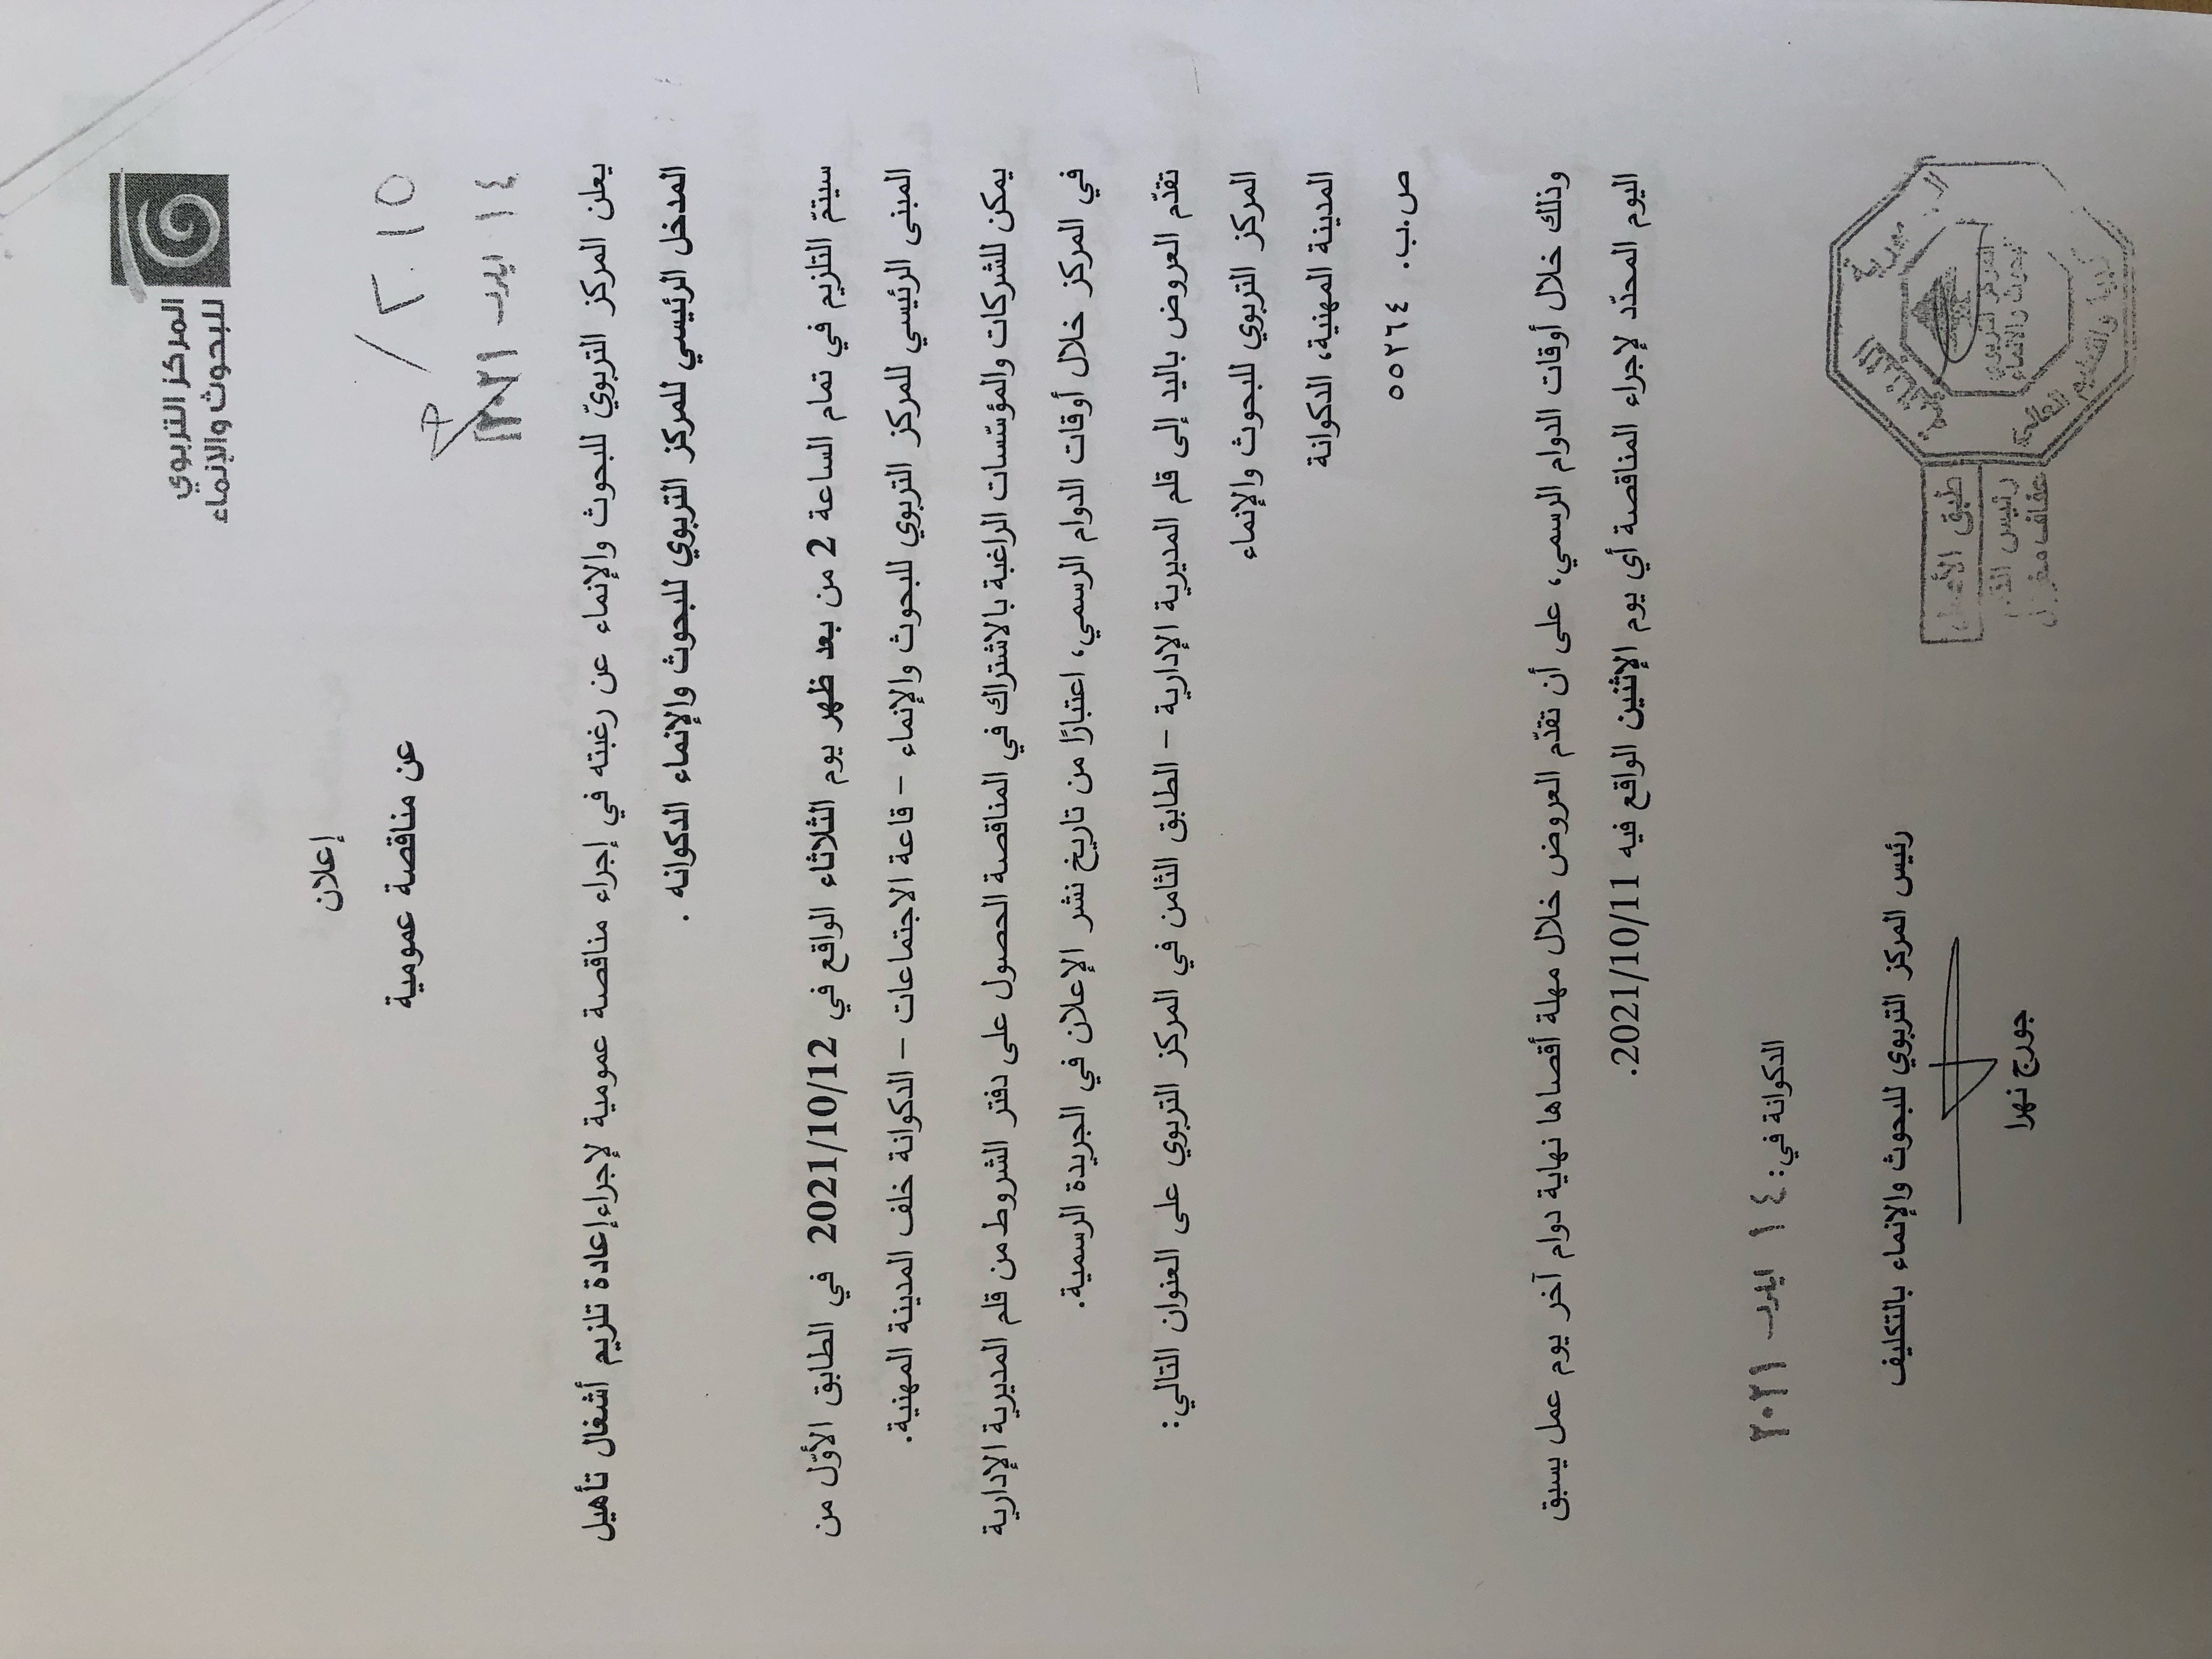 المركز التربوي
للبحوث والإنماء
إعلان
عن مناقصة عمومية
١٤ ايلول ٢٠٢١
يعلن المركز التربويّ للبحوث والإنماء عن رغبته في إجراء مناقصة عمومية لإجراء إعادة تلزيم أشغال تأهيل
المدخل الرئيسي للمركز التربوي للبحوث والإنماء الدكوانه .
سيتمّ التلزيم في تمام الساعة 2 من بعد ظهر يوم الثلاثاء الواقع في 2021/10/12 في الطابق الأوّل من
المبنى الرئيسي للمركز التربوي للبحوث والإنماء - قاعة الاجتماعات - الدكوانة خلف المدينة المهنية.
يمكن للشركات والمؤسّسات الراغبة بالاشتراك في المناقصة الحصول على دفتر الشروط من قلم المديرية الإدارية
في المركز خلال أوقات الدوام الرسمي، اعتبارًا من تاريخ نشر الإعلان في الجريدة الرسمية.
تقدّم العروض باليد إلى قلم المديرية الإدارية - الطابق الثامن في المركز التربوي على العنوان التالي:
المركز التربوي للبحوث والإنماء
المدينة المهنية، الدكوانة
ص.ب. ٥٥٢٦٤
وذلك خلال أوقات الدوام الرسمي، على أن تقدّم العروض خلال مهلة أقصاها نهاية دوام آخر يوم عمل يسبق
اليوم المحدّد لإجراء المناقصة أي يوم الإثنين الواقع فيه 2021/10/11.
الدكوانة في: ١٤ ايلول ٢٠٢١
رئيس المركز التربوي للبحوث والإنماء بالتكليف
جورج نهرا
طبق الأصل
المركز التربوي
للبحوث والإنماء